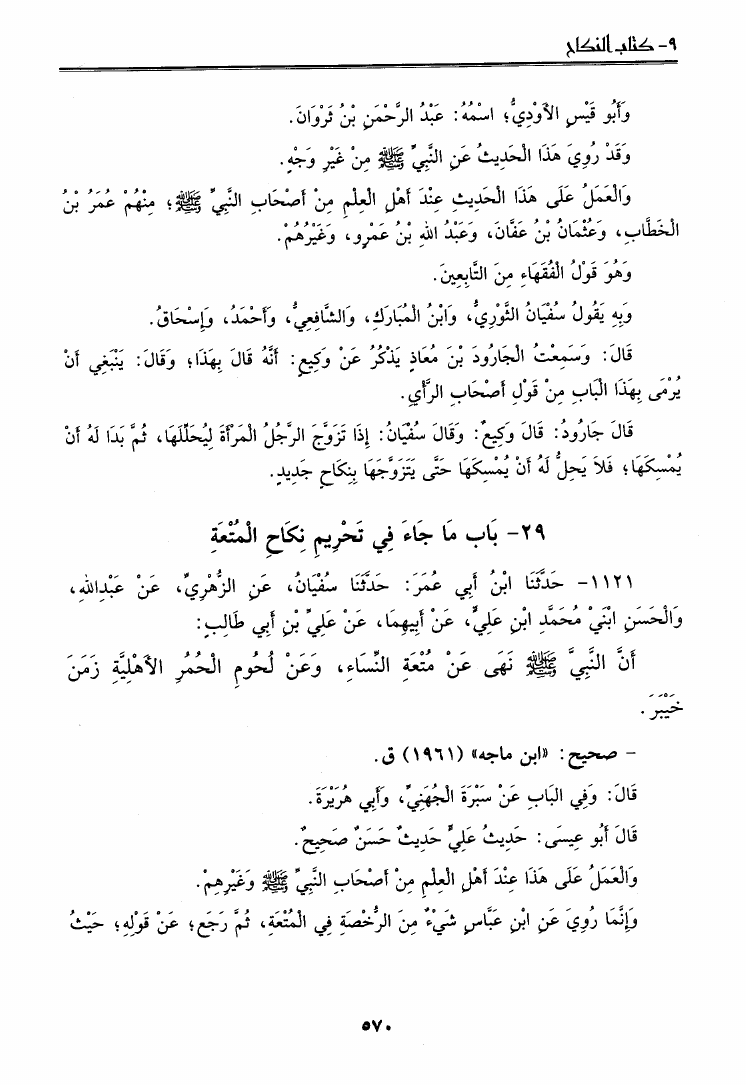 ٩- كتاب النكاح
وَأَبُو قَيْسٍ الأَوْدِيُّ؛ اسْمُهُ: عَبْدُ الرَّحْمَنِ بْنُ ثَرْوَانَ.
وَقَدْ رُوِيَ هَذَا الْحَدِيثُ عَنِ النَّبِيِّ ﷺ مِنْ غَيْرِ وَجْهٍ.
وَالْعَمَلُ عَلَى هَذَا الْحَدِيثِ عِنْدَ أَهْلِ الْعِلْمِ مِنْ أَصْحَابِ النَّبِيِّ ﷺ؛ مِنْهُمْ عُمَرُ بْنُ
الْخَطَّابِ، وَعُثْمَانُ بْنُ عَفَّانَ، وَعَبْدُ اللهِ بْنُ عَمْرٍو، وَغَيْرُهُمْ.
وَهُوَ قَوْلُ الْفُقَهَاءِ مِنَ التَّابِعِينَ.
وَبِهِ يَقُولُ سُفْيَانُ الثَّوْرِيُّ، وَابْنُ الْمُبَارَكِ، وَالشَّافِعِيُّ، وَأَحْمَدُ، وَإِسْحَاقُ.
قَالَ: وَسَمِعْتُ الْجَارُودَ بْنَ مُعَاذٍ يَذْكُرُ عَنْ وَكِيعٍ: أَنَّهُ قَالَ بِهَذَا؛ وَقَالَ: يَنْبَغِي أَنْ
يُرْمَى بِهَذَا الْبَابِ مِنْ قَوْلِ أَصْحَابِ الرَّأْيِ.
قَالَ جَارُودُ: قَالَ وَكِيعٌ: وَقَالَ سُفْيَانُ: إِذَا تَزَوَّجَ الرَّجُلُ الْمَرْأَةَ لِيُحَلِّلَهَا، ثُمَّ بَدَا لَهُ أَنْ
يُمْسِكَهَا؛ فَلاَ يَحِلُّ لَهُ أَنْ يُمْسِكَهَا حَتَّى يَتَزَوَّجَهَا بِنِكَاحٍ جَدِيدٍ.
٢٩- بَاب مَا جَاءَ فِي تَحْرِيمِ نِكَاحِ الْمُتْعَةِ
١١٢١- حَدَّثَنَا ابْنُ أَبِي عُمَرَ: حَدَّثَنَا سُفْيَانُ، عَنِ الزُّهْرِيِّ، عَنْ عَبْدِاللهِ،
وَالْحَسَنِ ابْنَيْ مُحَمَّدِ ابْنِ عَلِيٍّ، عَنْ أَبِيهِمَا، عَنْ عَلِيِّ بْنِ أَبِي طَالِبٍ:
أَنَّ النَّبِيَّ ﷺ نَهَى عَنْ مُتْعَةِ النِّسَاءِ، وَعَنْ لُحُومِ الْحُمُرِ الأَهْلِيَّةِ زَمَنَ
خَيْبَرَ.
- صحيح: «ابن ماجه» (١٩٦١) ق.
قَالَ: وَفِي الْبَابِ عَنْ سَبْرَةَ الْجُهَنِيِّ، وَأَبِي هُرَيْرَةَ.
قَالَ أَبُو عِيسَى: حَدِيثُ عَلِيٍّ حَدِيثٌ حَسَنٌ صَحِيحٌ.
وَالْعَمَلُ عَلَى هَذَا عِنْدَ أَهْلِ الْعِلْمِ مِنْ أَصْحَابِ النَّبِيِّ ﷺ وَغَيْرِهِمْ.
وَإِنَّمَا رُوِيَ عَنِ ابْنِ عَبَّاسٍ شَيْءٌ مِنَ الرُّخْصَةِ فِي الْمُتْعَةِ، ثُمَّ رَجَعَ؛ عَنْ قَوْلِهِ؛ حَيْثُ
٥٧٠